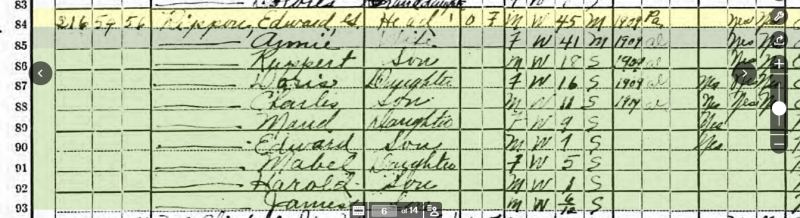 83 Granddaughter
84 216 54 56 Rippon, Edward, S. Head 1 O F M W 45 M 1909 Pa Yes
85 Annie Wife F W 41 M 1909 al Yes
86 Ruppert Son M W 18 S 1909 al Yes
87 Doris Daughter F W 16 S 1909 al Yes Yes
88 Charles Son M W 11 S 1909 al Yes Yes
89 Maud Daughter F W 9 S Yes
90 Edward Son M W 7 S Yes
91 Mabel Daughter F W 5 S
92 Harold Son M W 1 S
93 James M W 6/12 S
6 of 14